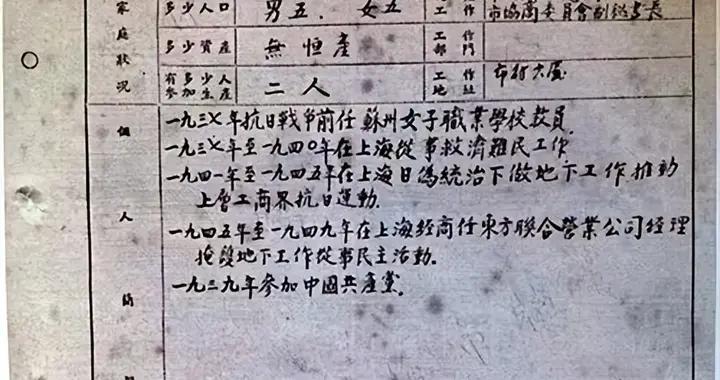 家庭狀況
多少人口 男五. 女五 工作 市協商委員會副秘書長
多少資產 無恒產 工作部門
有多少人參加生產 二人 工作地址 市府大廈
個人簡
一九三七年抗日戰爭前任蘇州女子職業學校教員.
一九三七年至一九四〇年在上海從事救濟難民工作
一九四一年至一九四五年在上海日僞統治下做地下工作推動
上層工商界抗日運動.
一九四五年至一九四九年在上海經商任東方聯合營業公司經理
掩護地下工作從事民主活動.
一九三九年參加中國共產黨.